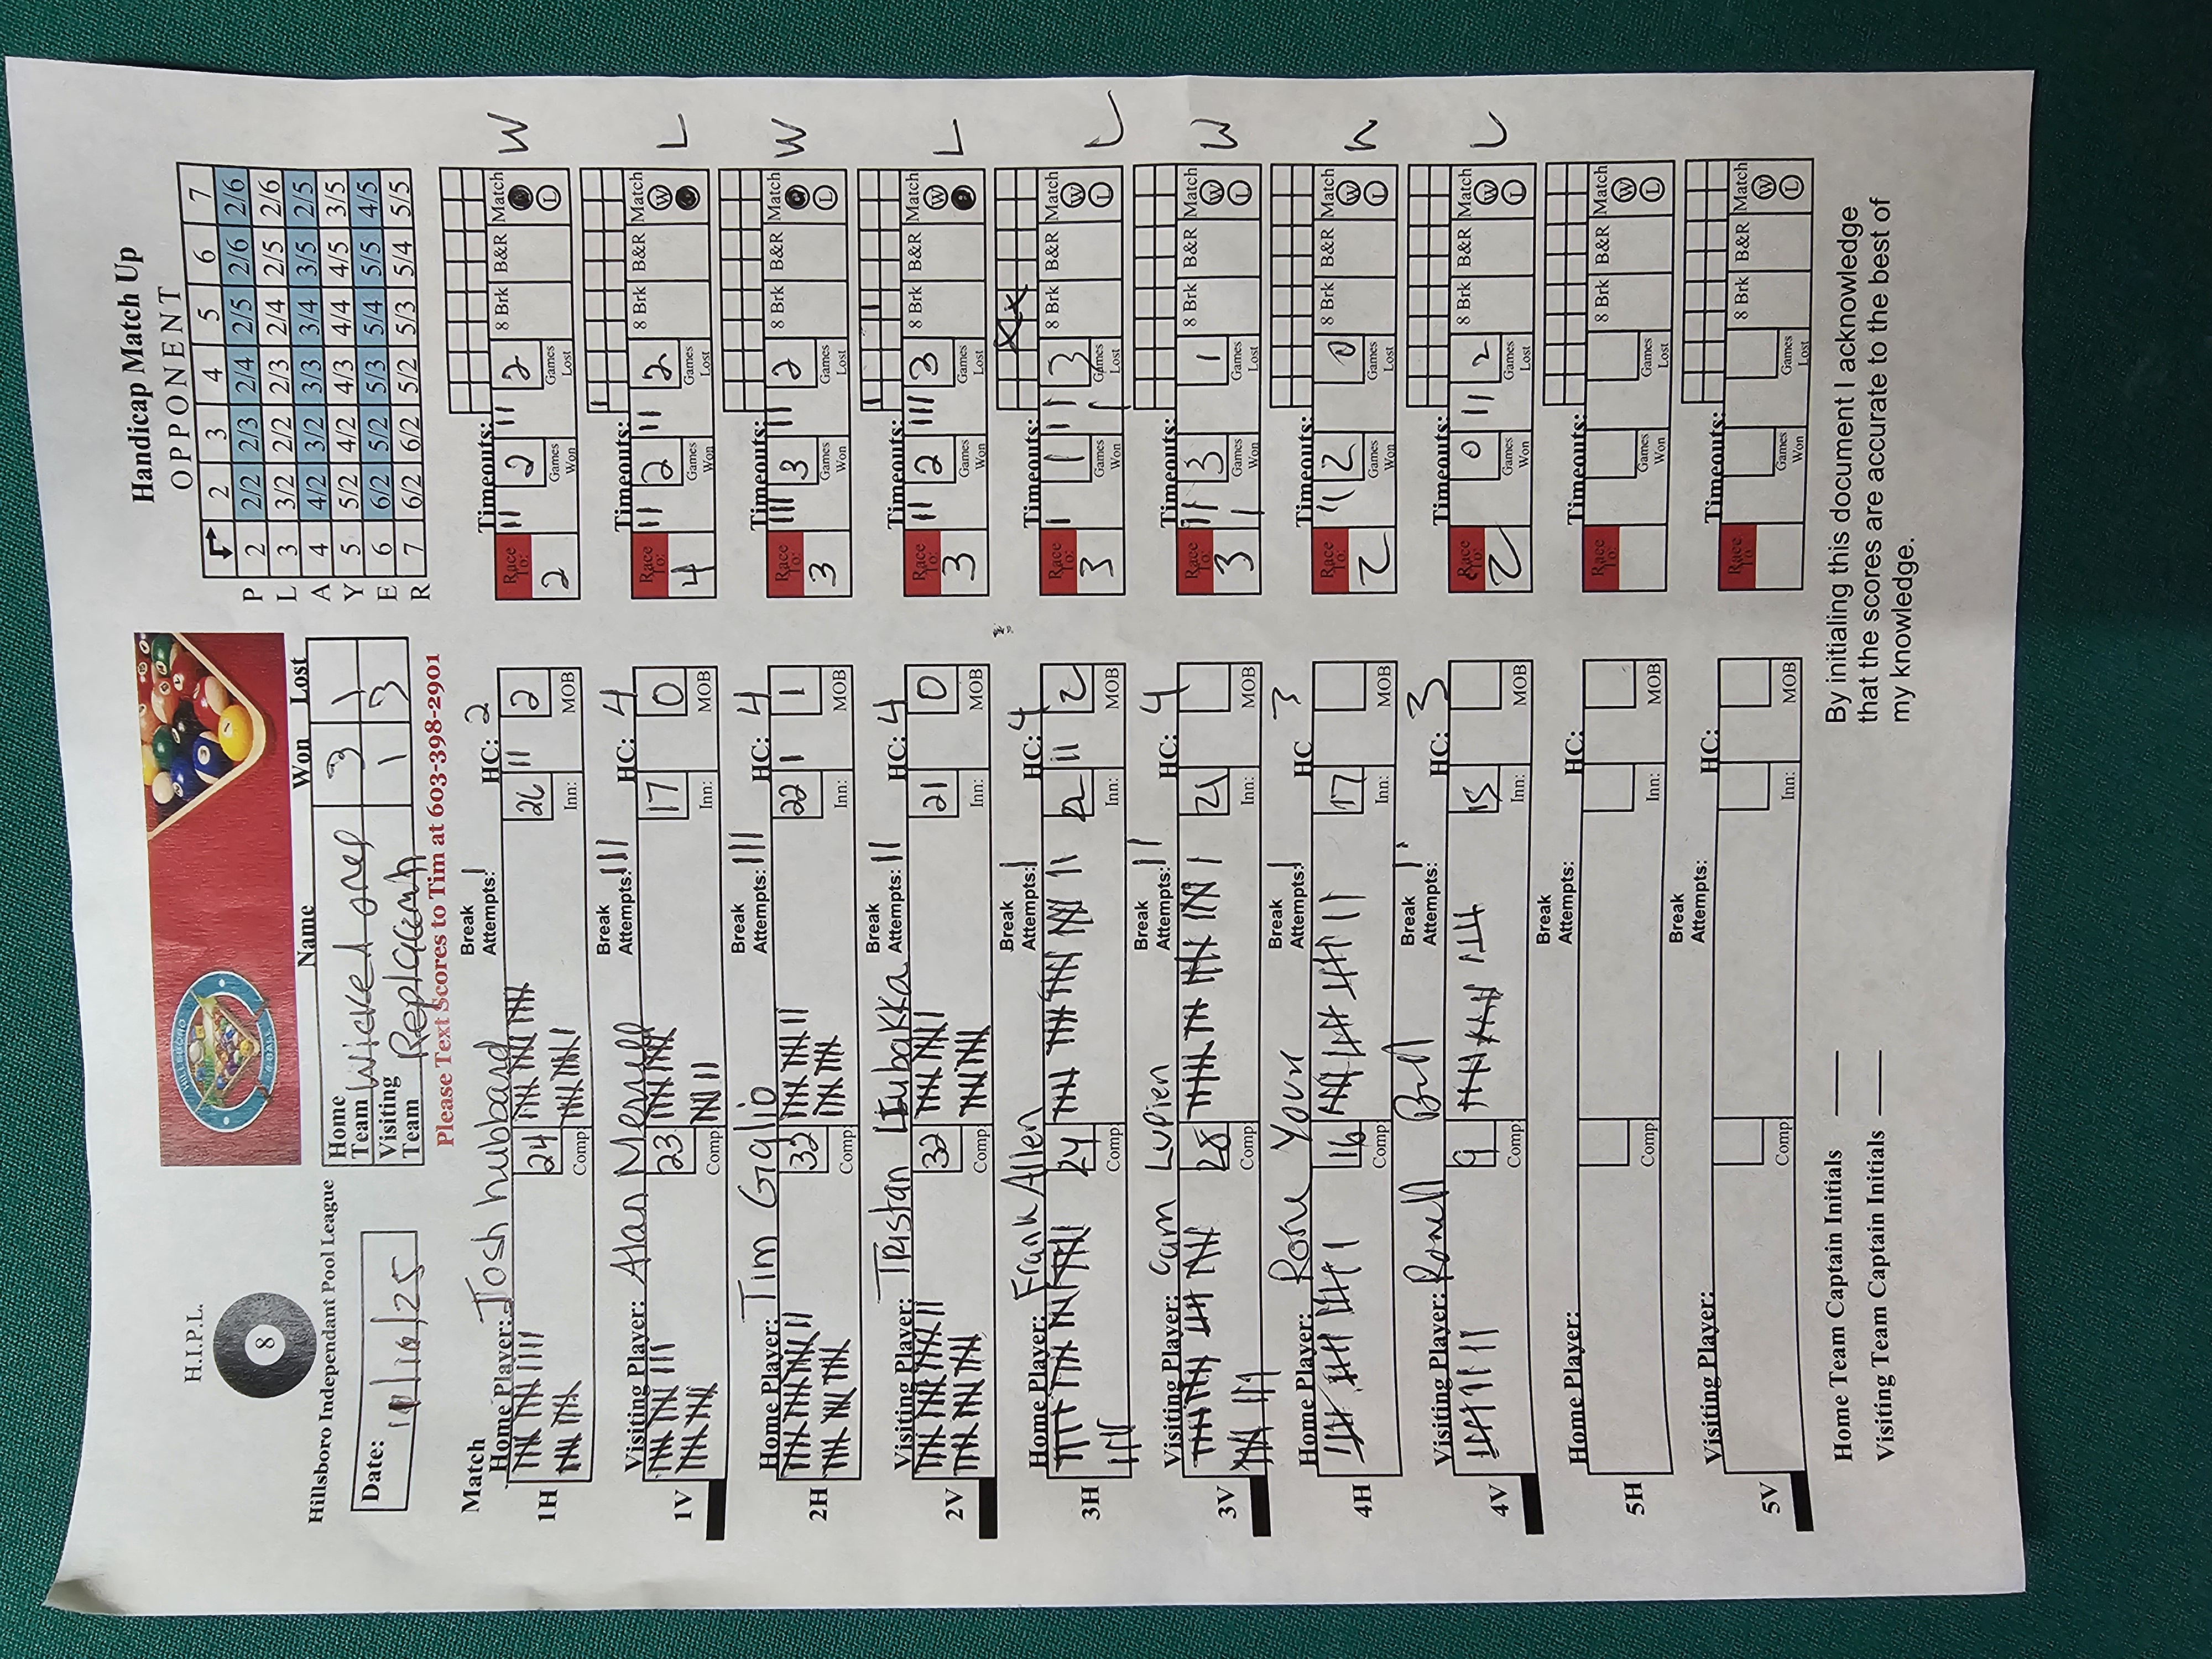 H.I.P.L.
8
Hillsboro Independant Pool League
Date:
HILLSBORO
Name Won Lost
Home Team Wicked ones 3 1
Visiting Team Replacements 1 3
Please Text Scores to Tim at 603-398-2901
Handicap Match Up
OPPONENT
2 3 4 5 6 7
P 2 2/2 2/3 2/4 2/5 2/6 2/6
L 3 3/2 2/2 2/3 2/4 2/5 2/6
A 4 4/2 3/2 3/3 3/4 3/5 2/5
Y 5 5/2 4/2 4/3 4/4 4/5 3/5
E 6 6/2 5/2 5/3 5/4 5/5 4/5
R 7 6/2 6/2 5/2 5/3 5/4 5/5
Match
Home Player: Josh hubbard Break Attempts: HC: 2 Timeouts:
1H 24 Comp 26 Inn: 2 MOB Race To: 2 2 Games Won 2 Games Lost 8 Brk B&R Match L W
Visiting Player: Alan Merrill Break Attempts: HC: 4 Timeouts:
1V 23 Comp 17 Inn: 0 MOB Race To: 4 2 Games Won 2 Games Lost 8 Brk B&R Match W L
Home Player: Tim Galio Break Attempts: HC: 4 Timeouts:
2H 32 Comp 22 Inn: 1 MOB Race To: 3 3 Games Won 2 Games Lost 8 Brk B&R Match L W
Visiting Player: Tristan Break Attempts: HC: 4 Timeouts:
2V 32 Comp 21 Inn: 0 MOB Race To: 3 2 Games Won 3 Games Lost 8 Brk B&R Match W L
Home Player: Frank Allen Break Attempts: HC: 4 Timeouts:
3H 24 Comp Inn: 2 MOB Race To: 3 1 Games Won 3 Games Lost 8 Brk B&R Match W L L
Visiting Player: Cam Lupien Break Attempts: HC: 4 Timeouts:
3V 28 Comp 21 Inn: MOB Race To: 3 3 Games Won 1 Games Lost 8 Brk B&R Match W L W
Home Player: Break Attempts: HC 3 Timeouts:
4H 16 Comp 17 Inn: MOB Race To: 2 2 Games Won 0 Games Lost 8 Brk B&R Match W L W
Visiting Player: Break Attempts: HC: 3 Timeouts:
4V 9 Comp 15 Inn: MOB Race To: 2 0 Games Won 2 Games Lost 8 Brk B&R Match W L L
Home Player: Break Attempts: HC: Timeouts:
5H Comp Inn: MOB Race To: Games Won Games Lost 8 Brk B&R Match W L
Visiting Player: Break Attempts: HC: Timeouts:
5V Comp Inn: MOB Race To: Games Won Games Lost 8 Brk B&R Match W L
Home Team Captain Initials
Visiting Team Captain Initials
By initialing this document I acknowledge
that the scores are accurate to the best of
my knowledge.